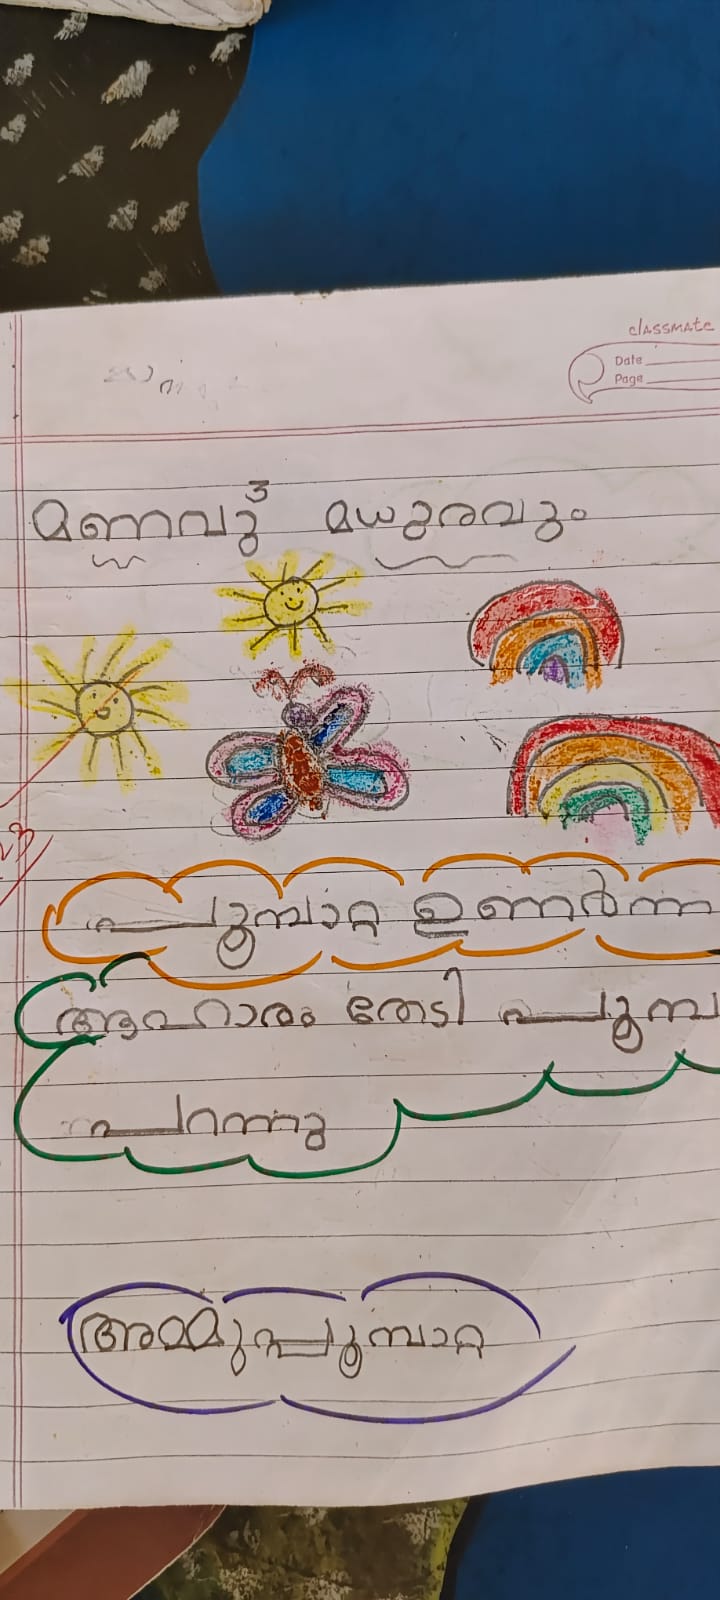 classmate
Date
Page
മണവും മധുരവും
പൂമ്പാറ്റ ഉണർന്ന
ആഹാരം തേടി പൂമ്പ
പറന്നു
അമ്മുപൂമ്പാറ്റ